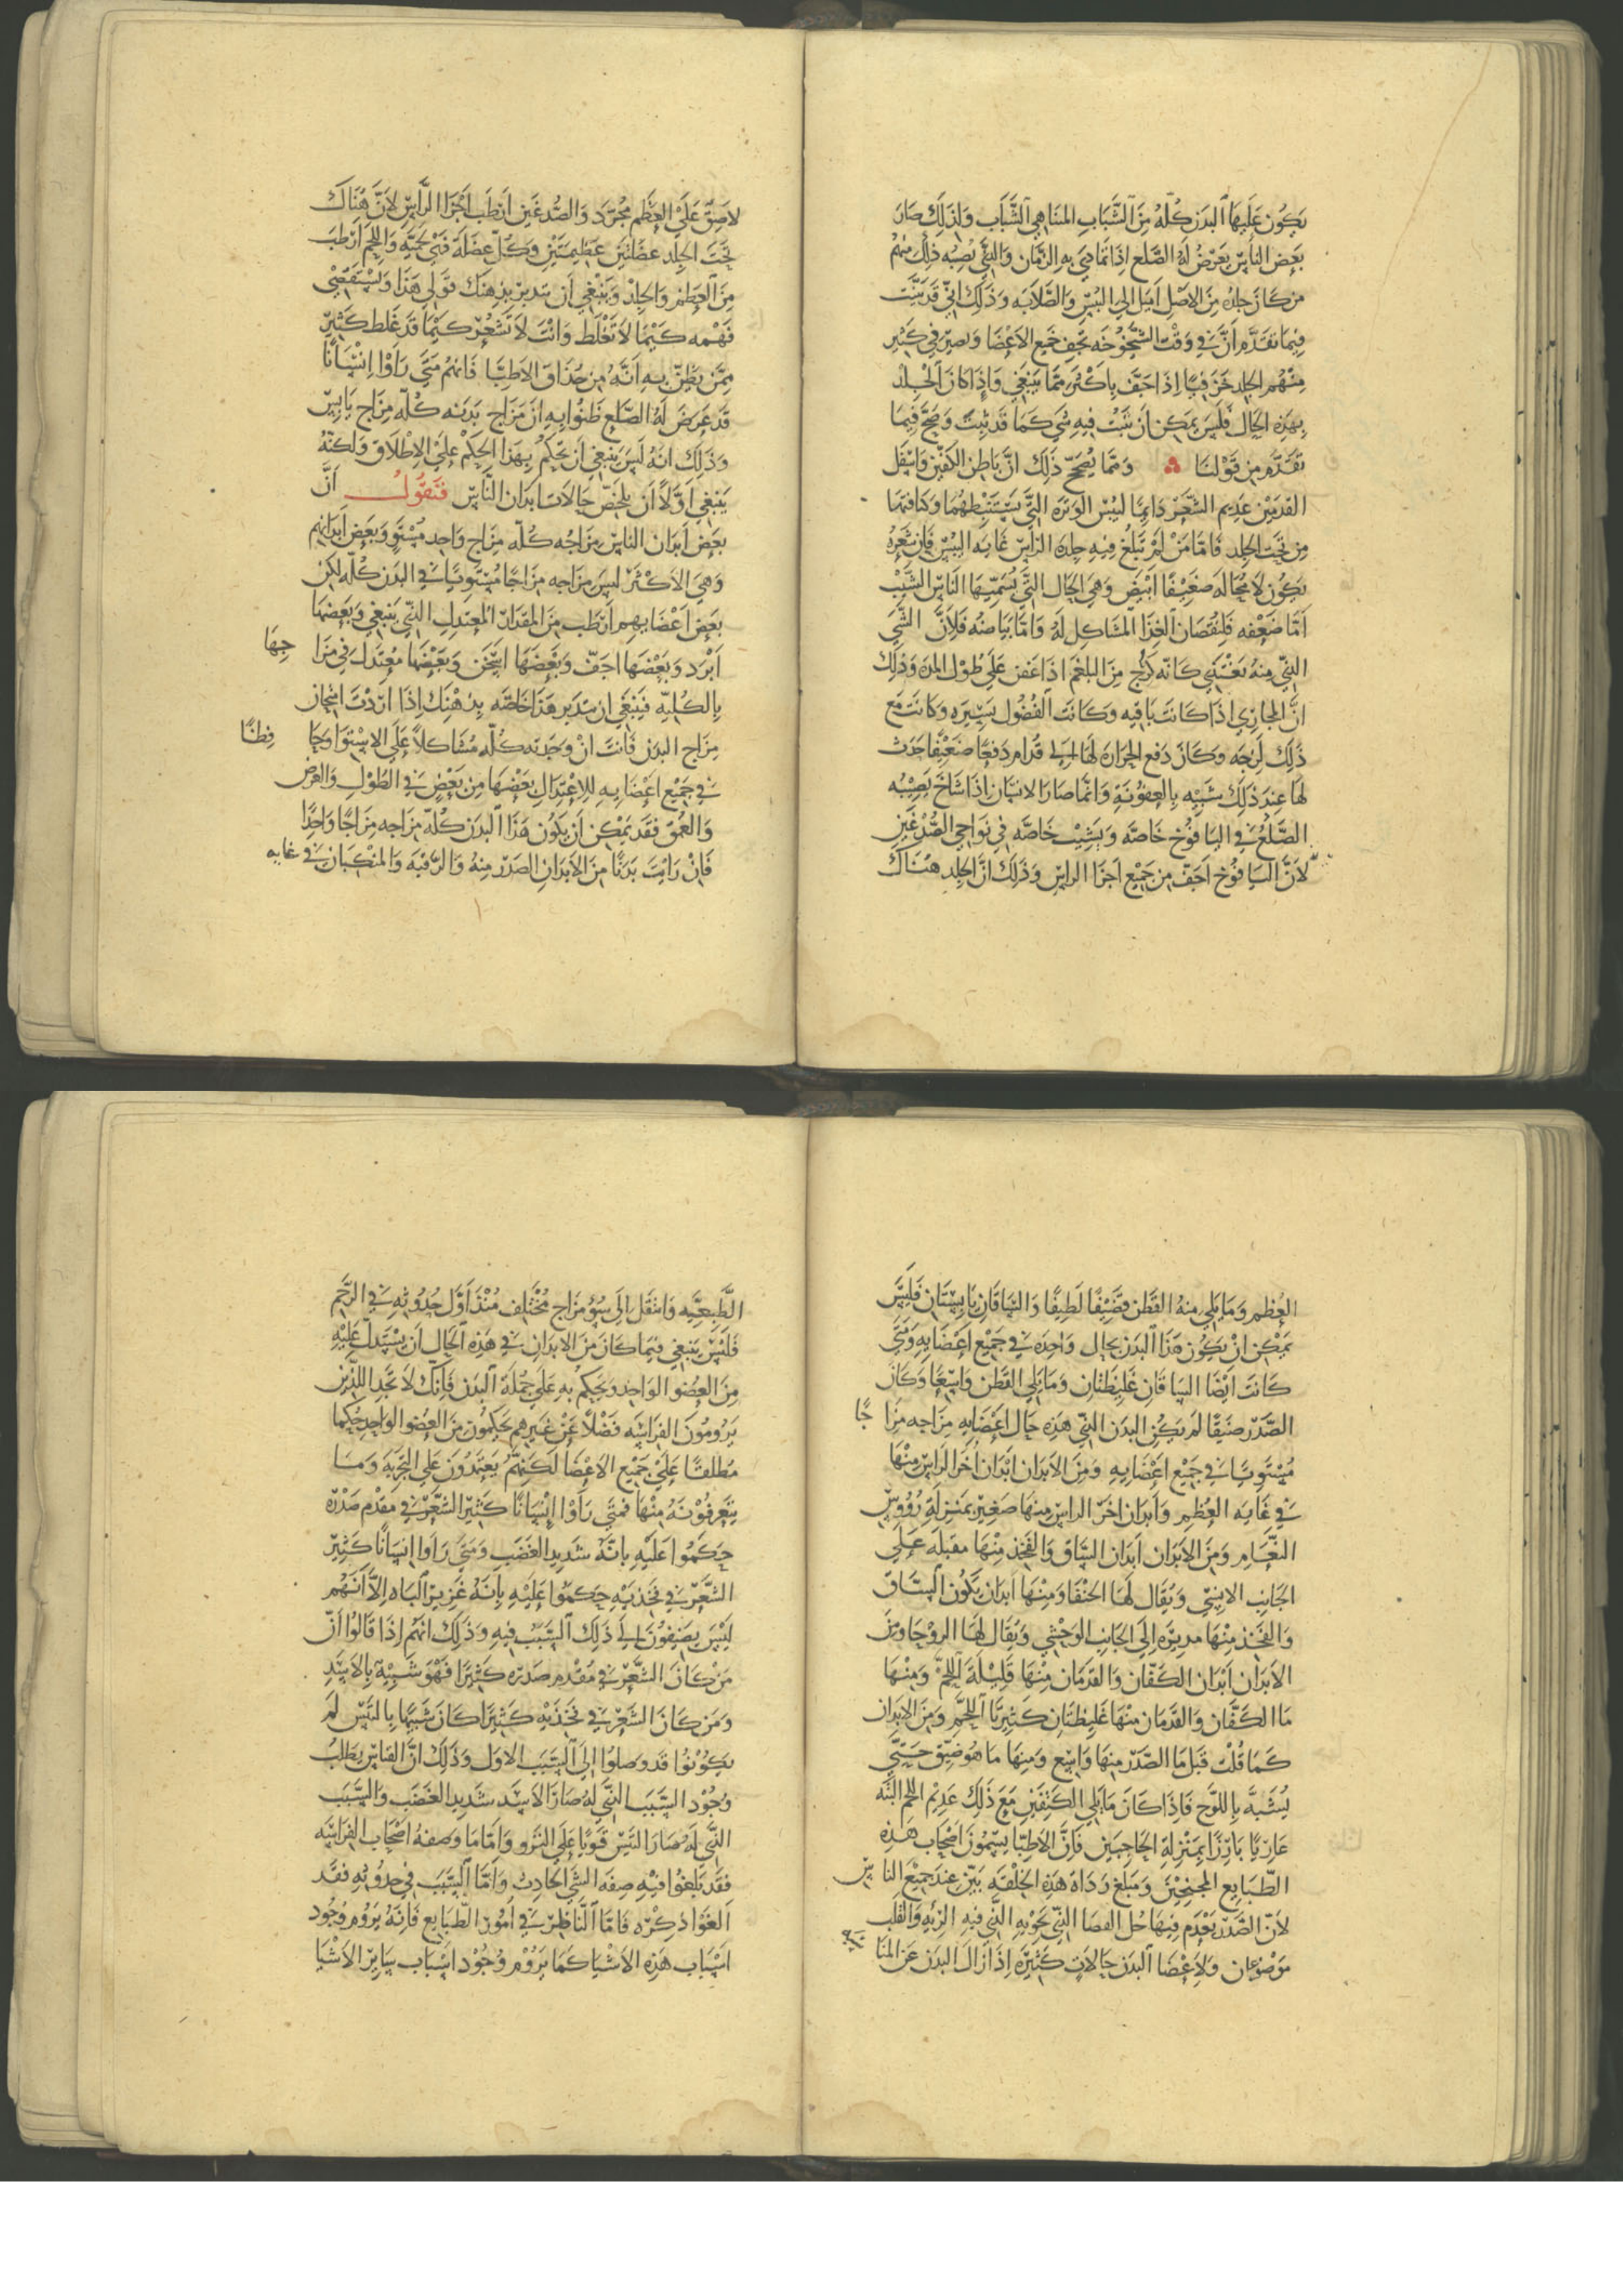 يكون عليها البدن كله من الشباب المتناهي الشباب ولذلك صار
بعض الناس يعرض له الصلع اذا تمادي به الزمان والذي يصيبه ذلك منهم
من كان جلده من الاصل اميل الي اليبس والصلابه وذلك اني قد بينت
فيما تقدم ان في وقت الشيخوخه تجف جميع الاعضا ويصير في كثير
منهم الجلد خزفيا اذا جف باكثر مما ينبغي واذا كان الجلد
بهذه الحال فليس يمكن ان ينبت فيه شي كما قد ثبت وصح فيما
تقدم من قولنا ومما يصحح ذلك ان باطن الكفين واسفل
القدمين عديم الشعر دايما ليبس الوتره التي تستبطنهما وكثافتها
من تحت الجلد فاما من لم تبلغ فيه جلده الراس غايه اليبس فان شعره
يكون لا محاله ضعيفا ابيض وهي الحال التي يسميها الناس الشيب
اما ضعفه فلنقصان الغذا المشاكل له واما بياضه فلان الشي
الذي منه يغتذي كانه كرج من البلغم اذا عفن علي طول المده وذلك
ان المجاري اذا كانت باقيه وكانت الفضول يسيره وكانت مع
ذلك لزجه وكان دفع الحراره لها الي قدام دفعا ضعيفا حدث
لها عند ذلك شبيه بالعفونه وانما صار الانسان اذا شاخ يصيبه
الصلع في اليافوخ خاصه ويشيب خاصه في نواحي الصدغين
لان اليافوخ اجف من جميع اجزا الراس وذلك ان الجلد هناك
لاصق علي العظم مجرد والصدغين ارطب اجزا الراس لان هناك
تحت الجلد عضلتين عظيمتين وكل عضلة فهي لحميه واللحم ارطب
من العظم والجلد وينبغي ان تتدبر بذهنك قولي هذا وتستقصي
فهمه كيما لا تغلط وانت لا تشعر كما قد غلط كثير
ممن يظن به انه من حذاق الاطبا فانهم متي راوا انسانا
قد عرض له الصلع ظنوا به ان مزاج بدنه كله مزاج يابس
وذلك انه ليس ينبغي ان نحكم بهذا الحكم علي الاطلاق ولكنه
ينبغي اولا ان يلخص حالات ابدان الناس فنقول ان
بعض ابدان الناس مزاجه كله مزاج واحد مستو وبعض ابدانهم
وهي الاكثر ليس مزاجه مزاجا مستويا في البدن كله لكن
بعض اعضايهم ارطب من المقدار المعتدل الذي ينبغي وبعضها
ابرد وبعضها اجف وبعضها اسخن وبعضها معتدل في مزا جها
بالكليه فينبغي ان تتدبر هذا خاصه بذهنك اذا اردت امتحان
مزاج البدن فانت ان وجدته كله مشاكلا علي الاستوا وحا فظا
في جميع اعضايه للاعتدال بعضها من بعض في الطول والعرض
والعمق فقد يمكن ان يكون هذا البدن كله مزاجه مزاجا واحدا
فان رايت بدنا من الابدان الصدر منه والرقبه والمنكبان في غايه
العظم وما يلي منه القطن قضيفا لطيفا والساقان يابستان فليس
يمكن ان يكون هذا البدن بحال واحده في جميع اعضايه ومتي
كانت ايضا الساقان غليظتان وما يلي القطن واسعا وكان
الصدر ضيقا لم يكن البدن الذي هذه حال اعضايه مزاجه مزا جا
مستويا في جميع اعضايه ومن الابدان ابدان اخر الراس منها
في غايه العظم وابدان اخر الراس منها صغير بمنزلة رؤوس
النعام ومن الابدان ابدان الساق والفخذ منها مقبله علي
الجانب الانسي ويقال لها الحنفا ومنها ابدان يكون الساق
والفخذ منها مدبره الي الجانب الوحشي ويقال لها الروحا ومن
الابدان ابدان الكفان والقدمان منها قليلة اللحم ومنها
ما الكفان والقدمان منها غليظتان كثيرتا اللحم ومن الابدان
كما قلت قبل ما الصدر منها واسع ومنها ما هو ضيق حتي
يشبه باللوح فاذا كان ما يلي الكتفين مع ذلك عديم اللحم البته
عاريا بارزا بمنزلة الجناحين فان الاطبا يسمون اصحاب هذه
الطبايع المجنحين ومبلغ رداة هذه الخلقه بين عند جميع الناس
لان الصدر يعدم فيها جل الفضا الذي يحويه الذي فيه الريه والقلب
موضوعان ولاعضا البدن حالات كثيره اذا زال البدن عن المنا سبه
الطبيعيه وانتقل الي سوء مزاج مختلف منذ اول حدوثه في الرحم
فليس ينبغي فيما كان من الابدان في هذه الحال ان يستدل عليه
من العضو الواحد ويحكم به علي جملة البدن فانك لا تجد اللذين
يرومون الفراسه فضلا عن غيرهم يحكمون من العضو الواحد حكما
مطلقا علي جميع الاعضا لكنهم يعتمدون علي التجربه وما
يتعرفونه منها فمتي راوا انسانا كثير الشعر في مقدم صدره
حكموا عليه بانه شديد الغضب ومتي راوا انسانا كثير
الشعر في فخذيه حكموا عليه بانه غزير الباه الا انهم
ليس يضيفون الي ذلك السبب فيه وذلك انهم اذا قالوا ان
من كان الشعر في مقدم صدره كثيرا فهو شبيه بالاسد
ومن كان الشعر في فخذيه كثيرا كان شبيها بالتيس لم
يكونوا قد وصلوا الي السبب الاول وذلك ان القياس يطلب
وجود السبب الذي له صار الاسد شديد الغضب والسبب
الذي له صار التيس قويا علي النزو واما ما وصفه اصحاب الفراسه
فقد بلغوا فيه صفه الشي الحادث واما السبب في حدوثه فقد
الغوا ذكره فاما الناظر في امور الطبايع فانه يروم وجود
اسباب هذه الاشيا كما يروم وجود اسباب ساير الاشيا